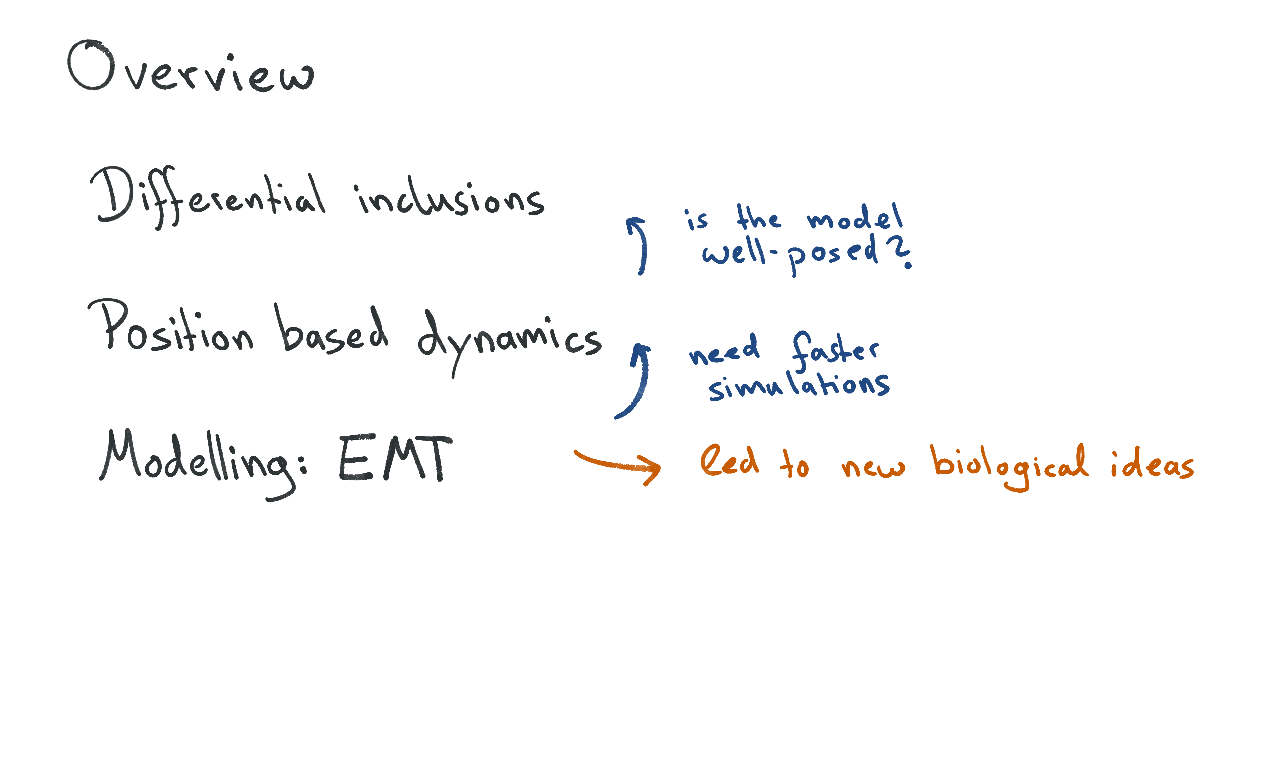 Overview
Differential inclusions
is the model
well-posed?
Position based dynamics
need faster
simulations
Modelling: EMT
led to new biological ideas